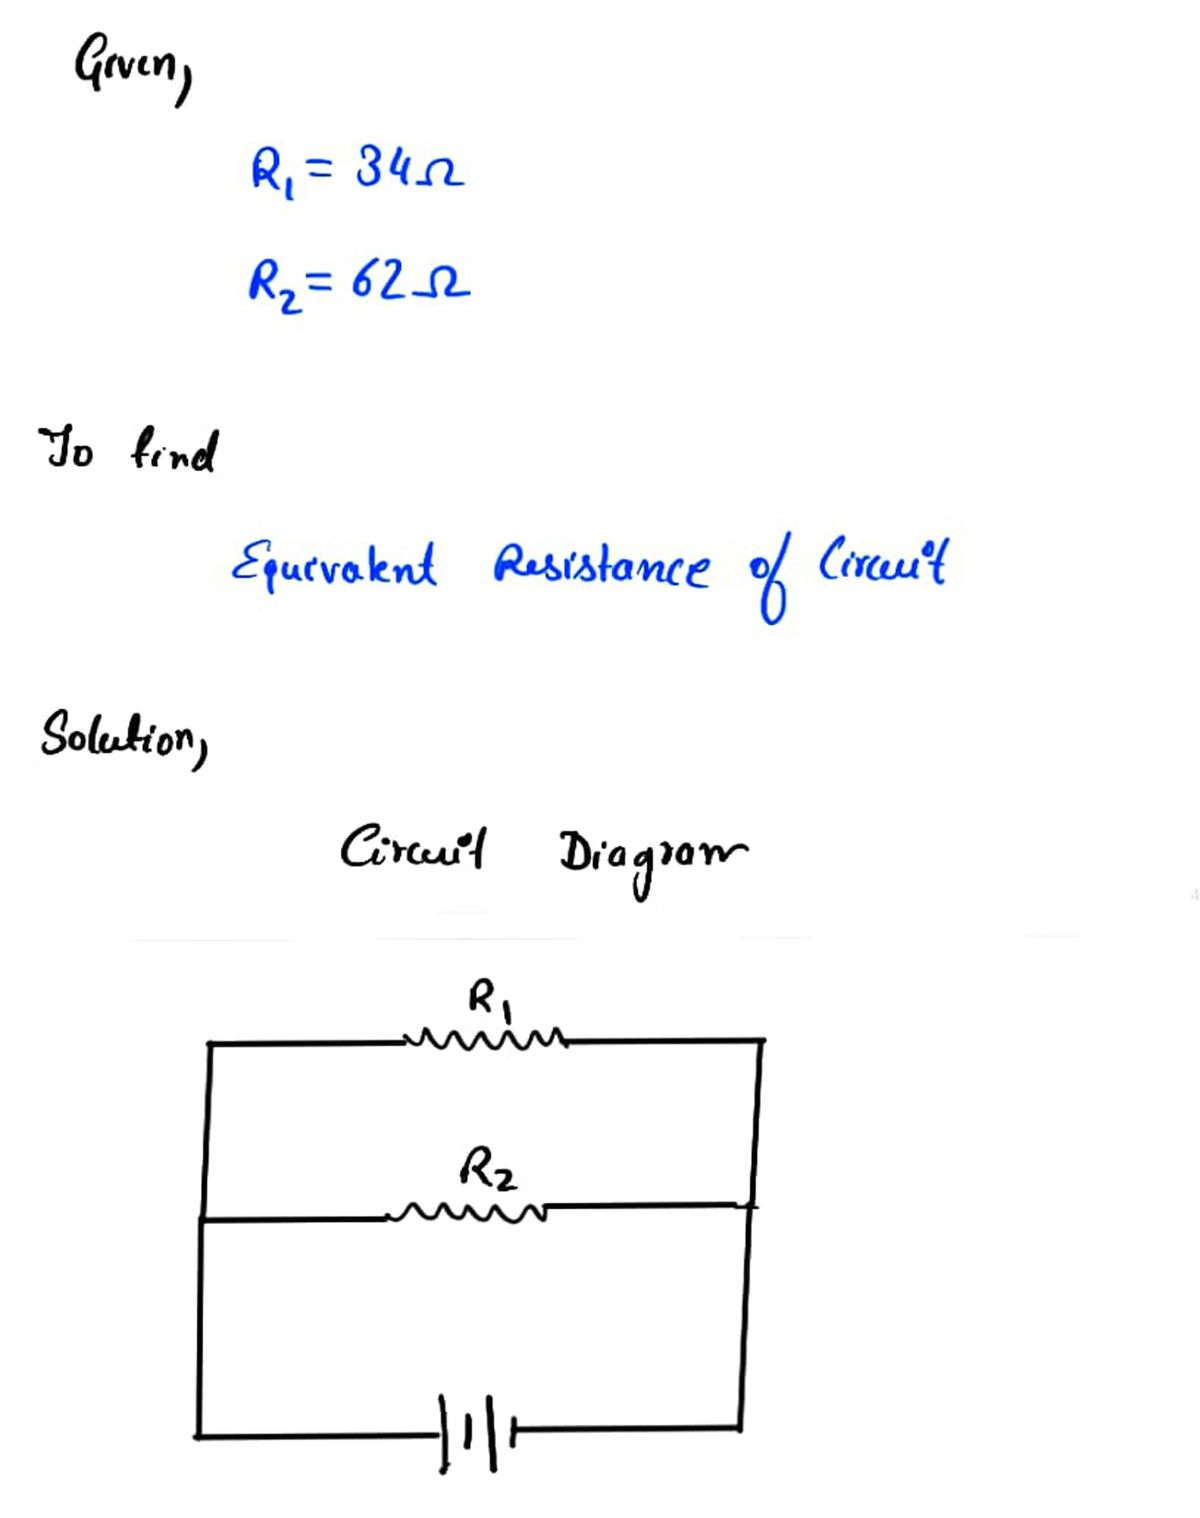 Given,
R₁ = 34Ω
R₂ = 62Ω
To find
Equivalent Resistance of Circuit
Solution,
Circuit Diagram
R₁
R₂